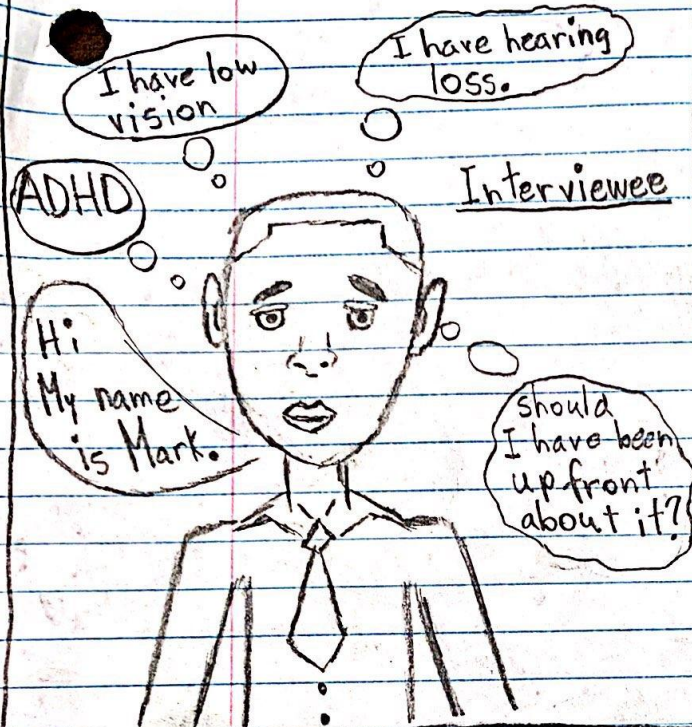 I have low
vision
I have hearing
loss.
ADHD
Interviewee
Hi
My name
is Mark.
should
I have been
up front
about it?